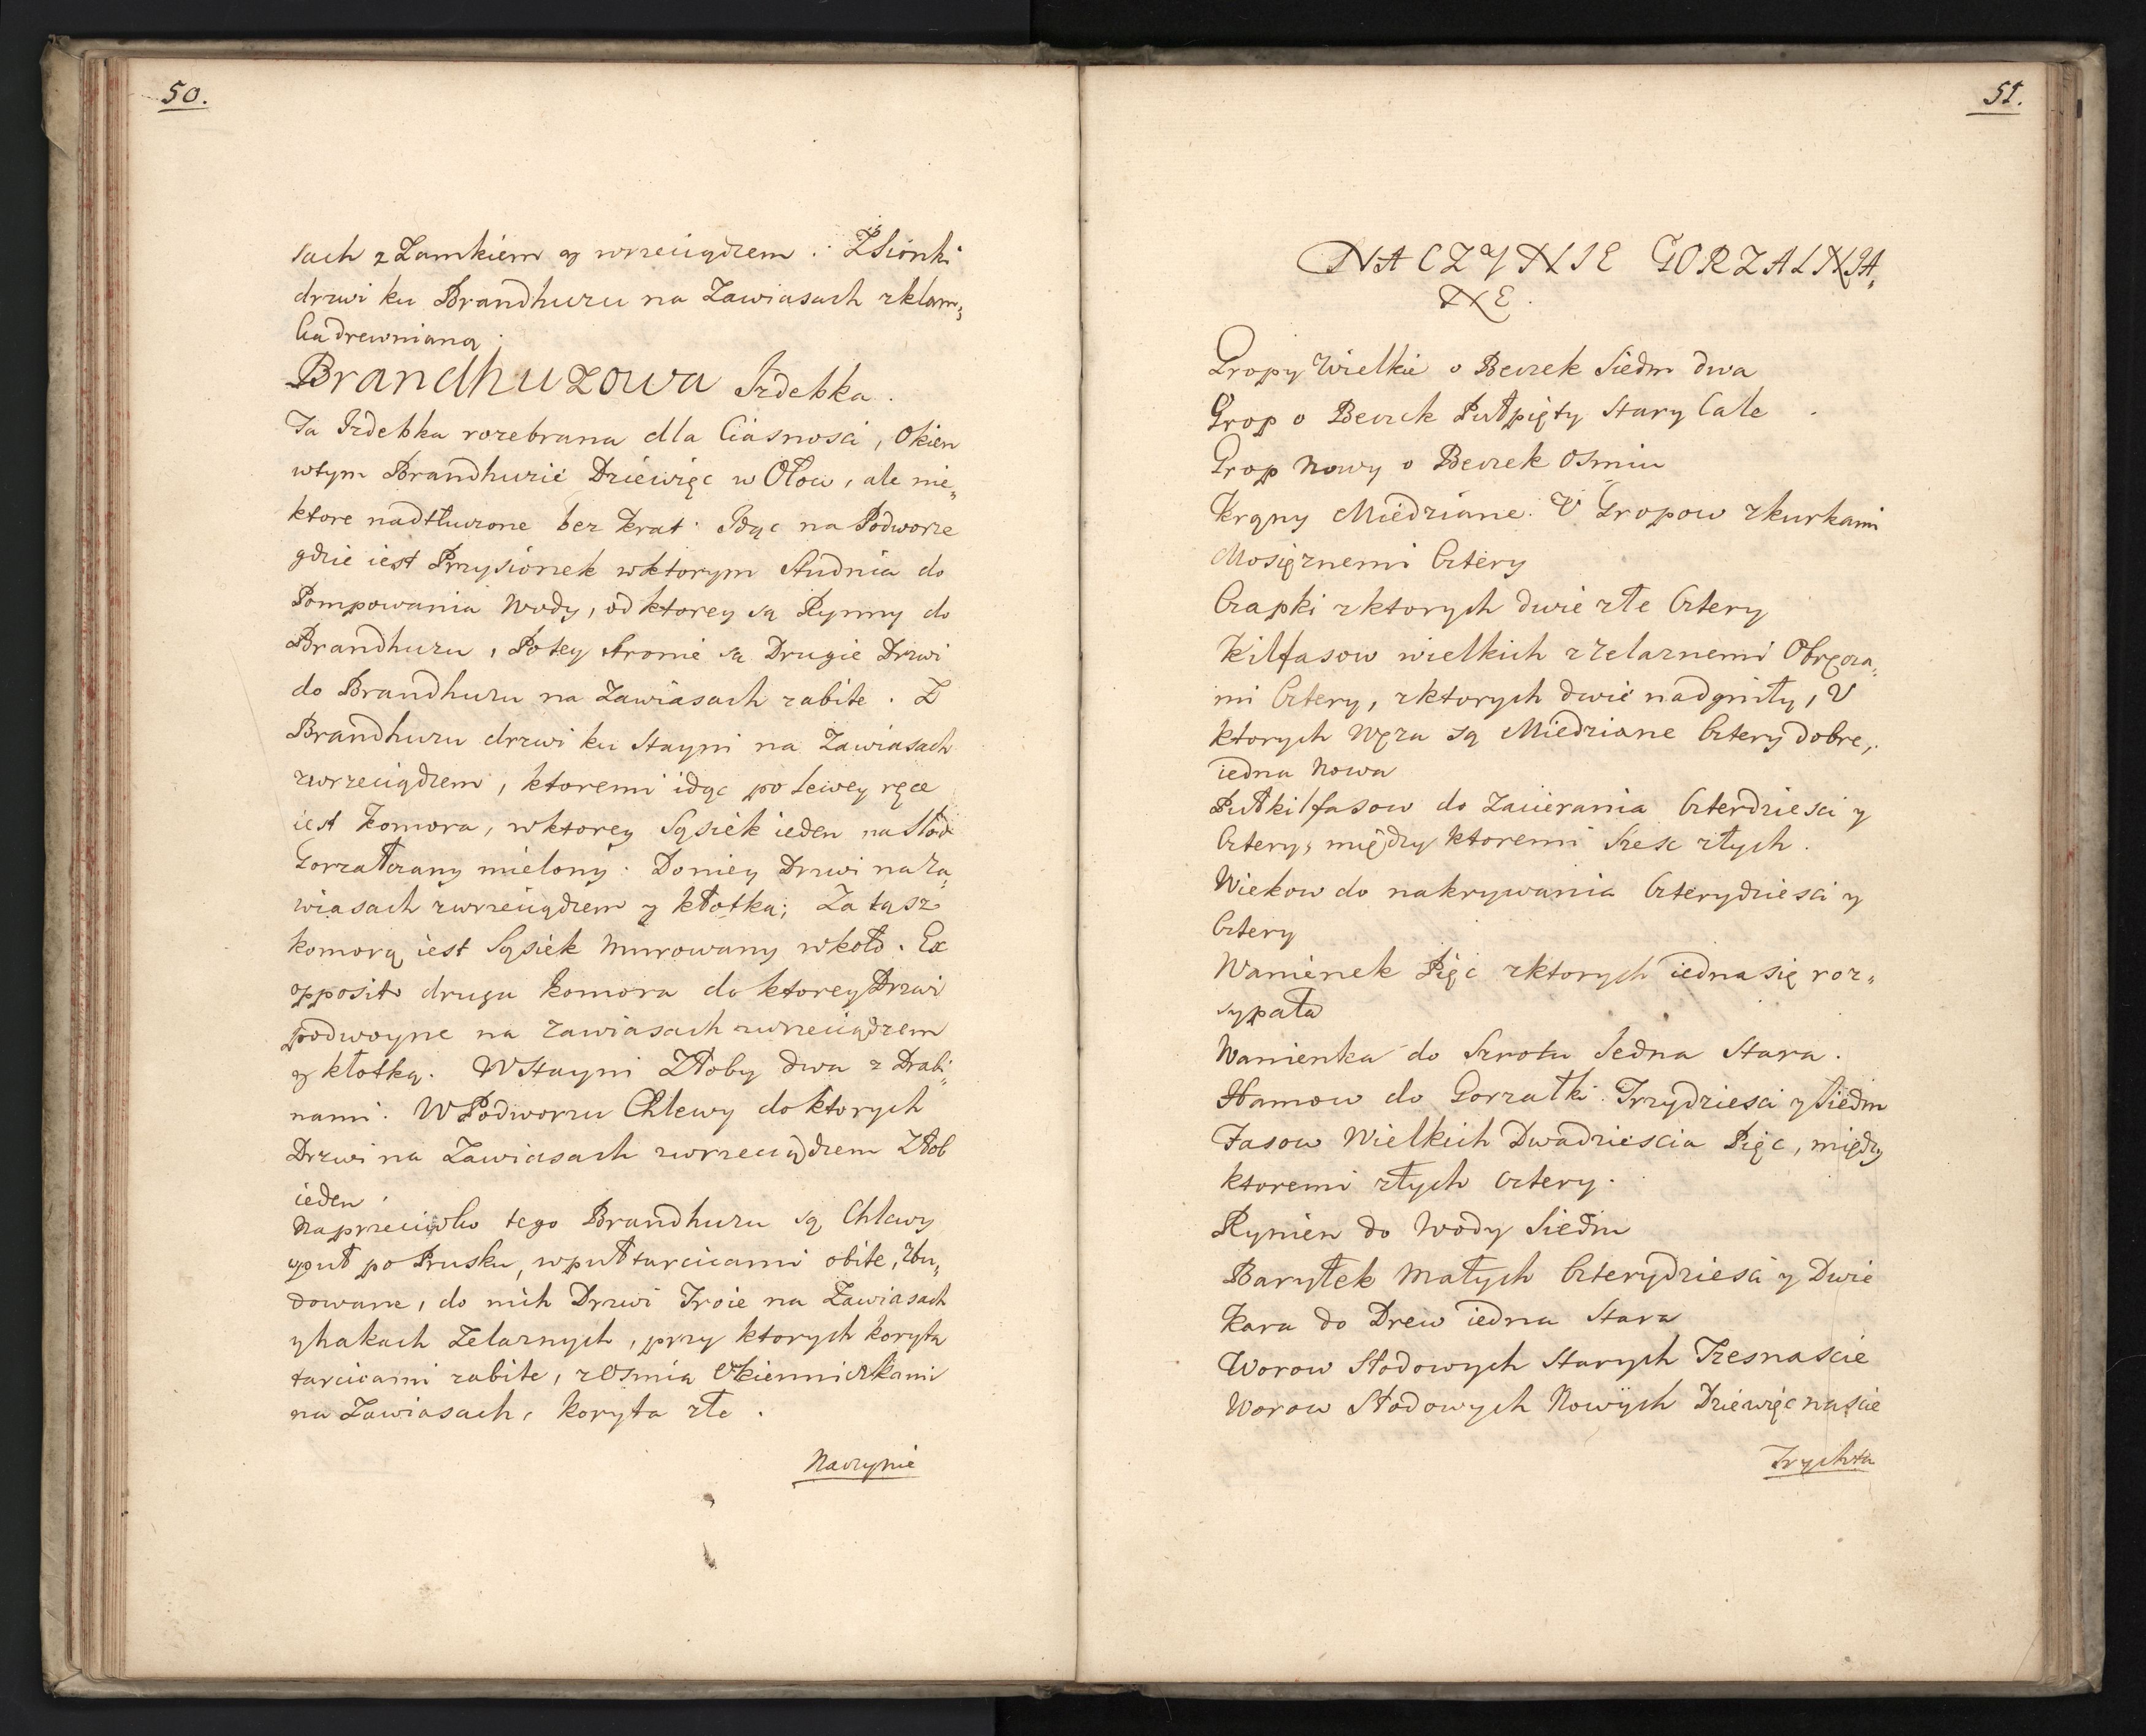 50.
sach z Zamkiem y wrzeciądzem. Z Sionki
drzwi ku Brandhuzu na Zawiasach z klam„
ką drewnianą.
Brandhuzowa Izdebka.
Ta Izdebka rozebrana dla Ciasnosci, Okien
wtym Brandhuzie Dziewięc w Ołow, ale nie„
ktore nadtłuczone bez Krat. Idąc na Podworze
gdzie iest Przysionek wktorym Studnia do
Pompowania Wody, od ktorey są Rynny do
Brandhuzu, Potey stronie są Drugie Drzwi
do Brandhuzu na Zawiasach zabite. Z
Brandhuzu drzwi ku Stayni na Zawiasach
zwrzeciądzem, ktoremi idąc po Lewey ręce
iest Komora, wktorey Sąsiek ieden na Słod
Gorzałczany mielony. Doniey Drzwi naza„
wiasach zwrzeciądzem y kłotką; Za tąsz
komorą iest Sąsiek Murowany wkoło. Ex
opposito druga komora do ktorey Drzwi
podwoyne na zawiasach zwrzeciądzem
y kłotką. W Stayni Złoby dwa z Drabi„
nami. W Podworzu Chlewy do ktorych
Drzwi na Zawiasach zwrzeciądzem Złob
ieden.
Naprzeciwko tego Brandhuzu są Chlewy
wpuł po Prusku, wpuł tarcicami obite, Zbu„
dowane, do nich Drzwi Troie na Zawiasach
yhakach Zelaznych, przy ktorych koryta
tarcicami zabite, z Osmią Okienniczkami
na Zawiasach, koryta złe.
Naczynie
51.
NACZYNIE GORZALNIA„
NE.
Gropy Wielkie o Beczek Siedm dwa
Grop o Beczek Pułpięty Stary Cale.
Grop Nowy o Beczek Osmiu
Krąny Miedziane. V Gropow zkurkami
Mosięznemi Cztery
Czapki zktorych dwie złe Cztery
Kilfasow wielkich zZelaznemi Obręcza„
mi Cztery, zktorych dwie nadgniły, V
ktorych Węza są Miedziane Cztery dobre,
iedna Nowa
Pułkilfasow do Zacierania Czterdziesci y
Cztery, między ktoremi Szesc złych.
Wiekow do nakrywania Czterydziesci y
Cztery
Wanienek Pięc zktorych iedna się roz„
sypała
Wanienka do Szrotu Jedna Stara.
Hamow do Gorzałki. Trzydziesci y Siedm
Fasow Wielkich Dwadziescia Pięc, między
ktoremi złych Cztery.
Rynien do Wody Siedm
Baryłek Małych Czterydziesci y Dwie
Kara do Drew iedna Stara
Worow Słodowych Starych Szesnascie
Worow Słodowych Nowych Dziewięcnascie
Trychta